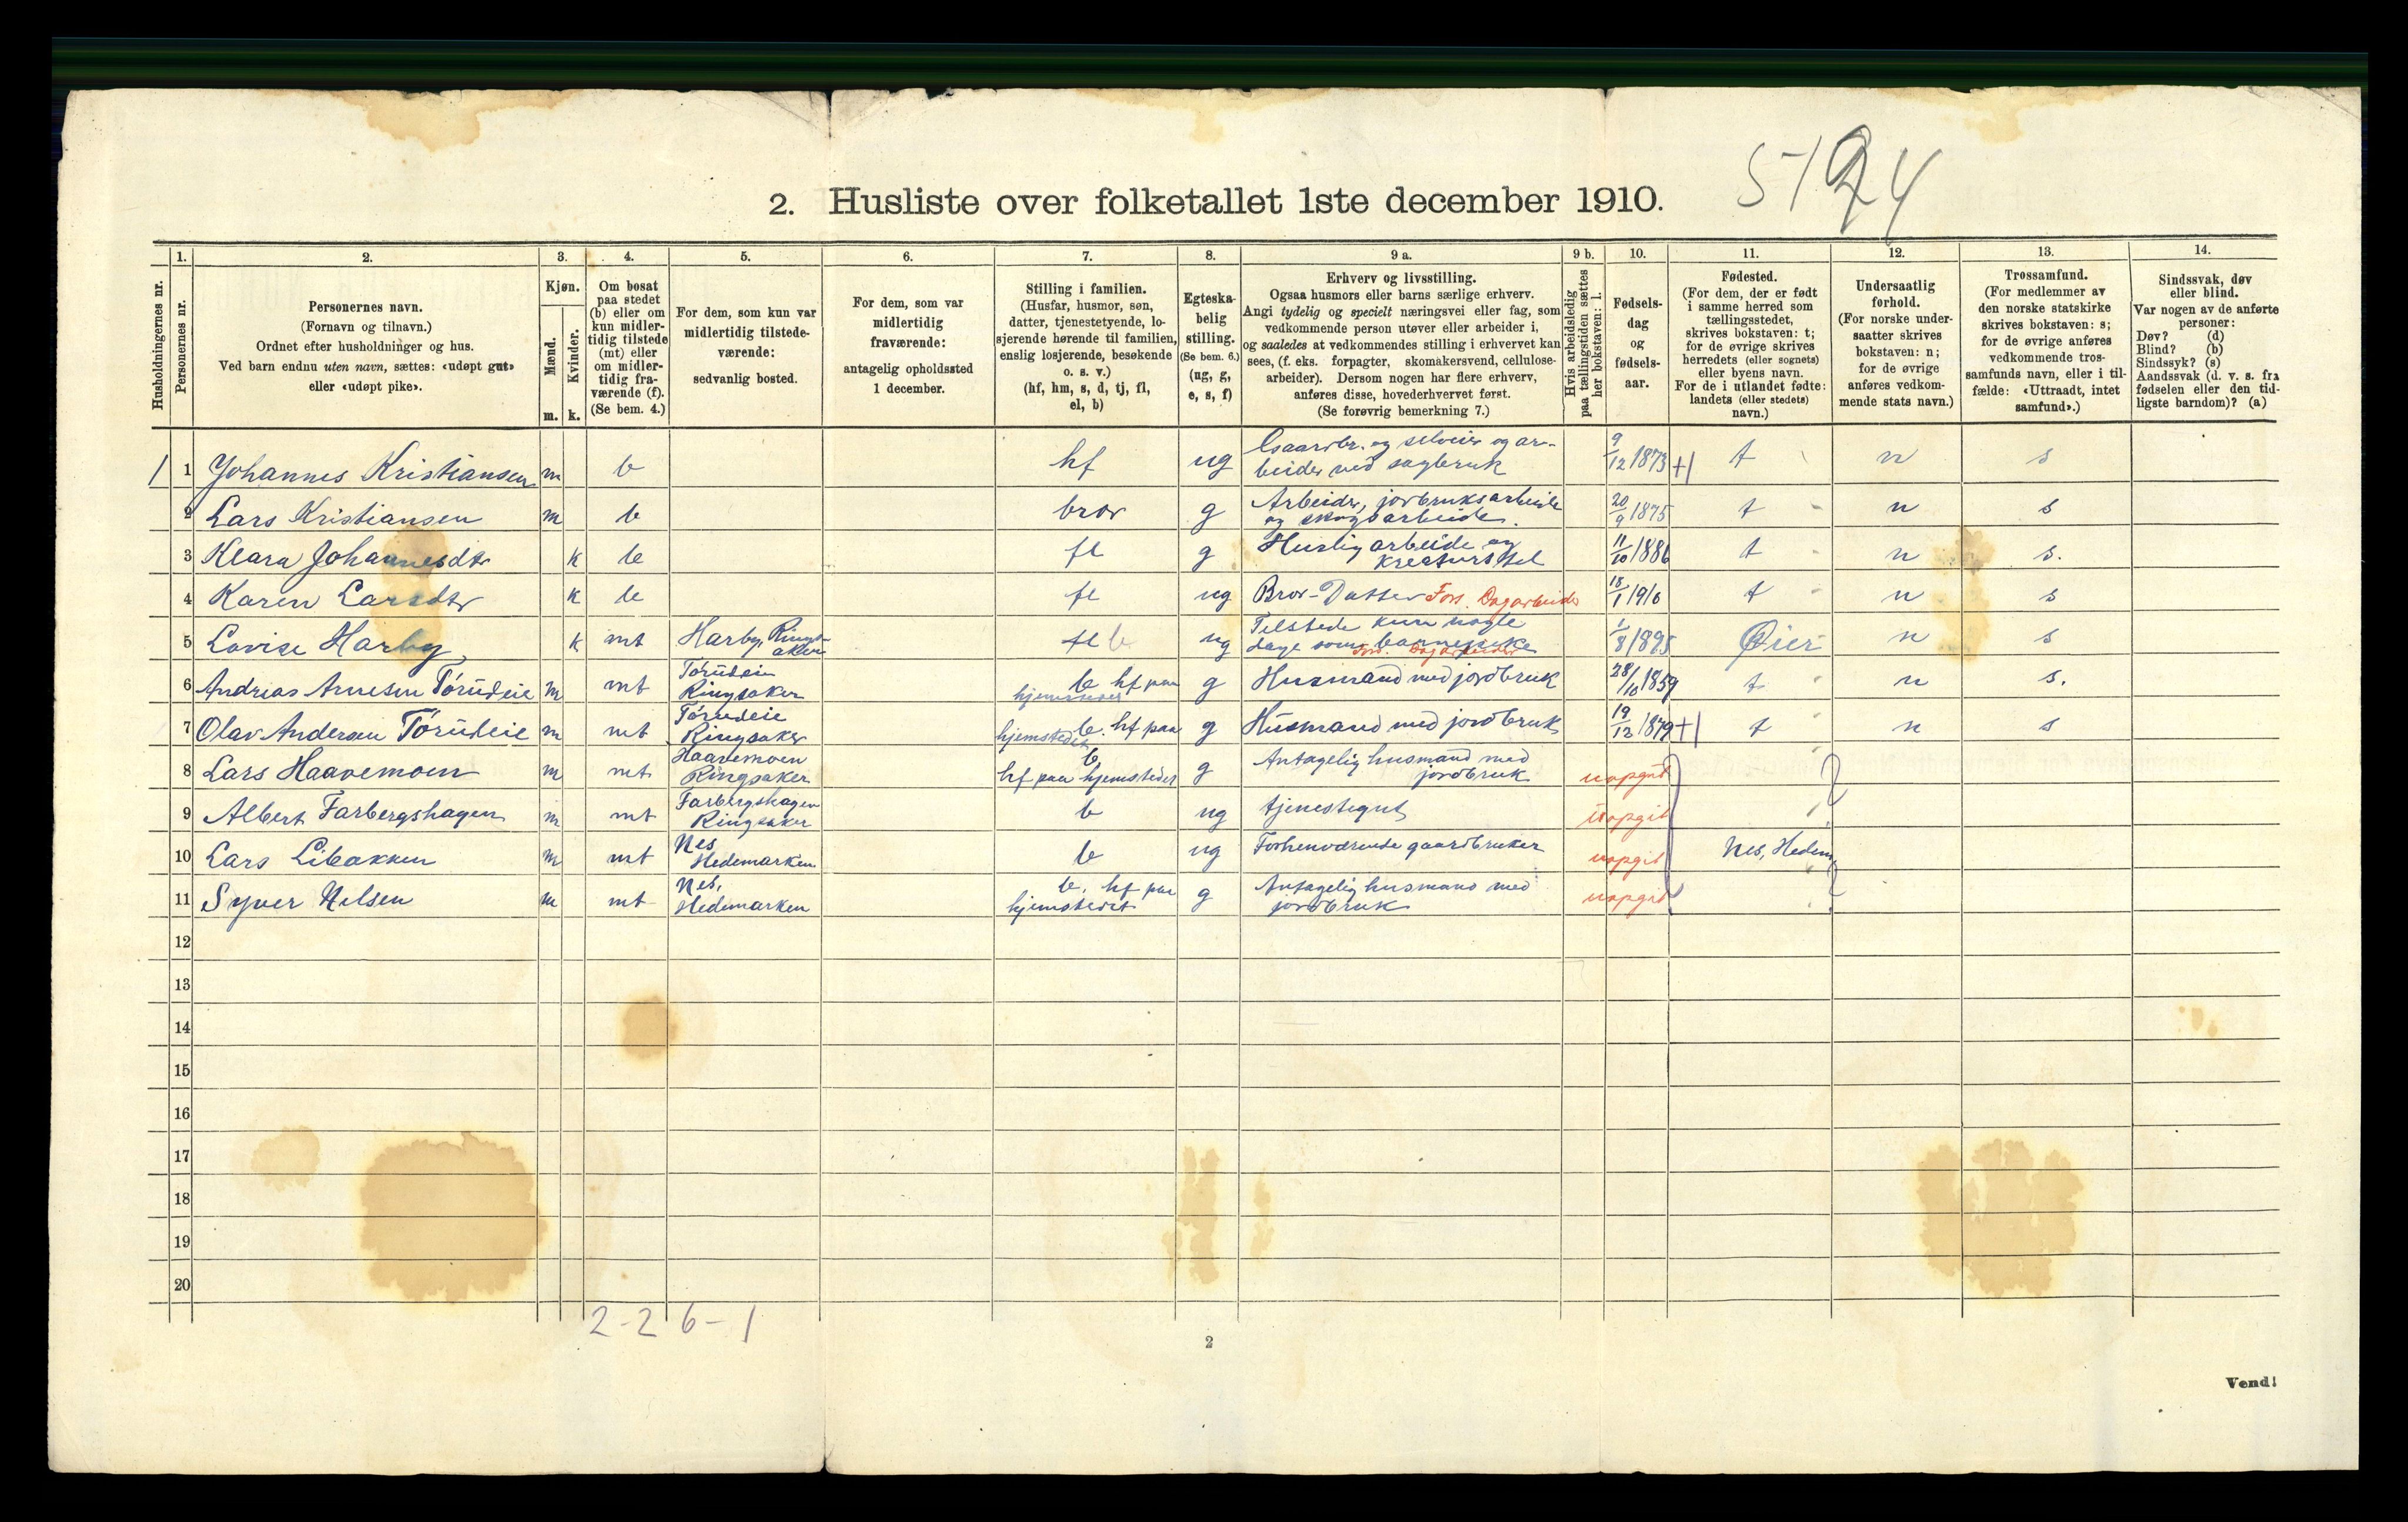 5-1924
2. Husliste over folketallet 1ste december 1910.
Husholdningernes nr.
1.
Personernes nr.
2.
Personernes navn.
(Fornavn og tilnavn.)
Ordnet efter husholdninger og hus.
Ved barn endnu uten navn, sættes: «udøpt gut»
eller «udøpt pike».
3.
Kjøn.
Mænd.
Kvinder.
m. k.
4.
Om bosat
paa stedet
(b) eller om
kun midler-
tidig tilstede
(mt) eller
om midler-
tidig fra-
værende (f).
(Se bem. 4.)
5.
For dem, som kun var
midlertidig tilstede-
værende:
sedvanlig bosted.
6.
For dem, som var
midlertidig
fraværende:
antagelig opholdssted
1 december.
7.
Stilling i familien.
(Husfar, husmor, søn,
datter, tjenestetyende, lo-
sjerende hørende til familien,
enslig losjerende, besøkende
o. s. v.)
(hf, hm, s, d, tj, fl,
el, b)
8.
Egteska-
belig
stilling.
(Se bem. 6.)
(ug, g,
e, s, f)
9 a.
Erhverv og livsstilling.
Ogsaa husmors eller barns særlige erhverv.
Angi tydelig og specielt næringsvei eller fag, som
vedkommende person utøver eller arbeider i,
og saaledes at vedkommendes stilling i erhvervet kan
sees, (f. eks. forpagter, skomakersvend, cellulose-
arbeider). Dersom nogen har flere erhverv,
anføres disse, hovederhvervet først.
(Se forøvrig bemerkning 7.)
9 b.
Hvis arbeidsledig
paa tællingstiden sættes
her bokstaven: l.
10.
Fødsels-
dag
og
fødsels-
aar.
11.
Fødested.
(For dem, der er født
i samme herred som
tællingsstedet,
skrives bokstaven: t;
for de øvrige skrives
herredets (eller sognets)
eller byens navn.
For de i utlandet fødte:
landets (eller stedets)
navn.)
12.
Undersaatlig
forhold.
(For norske under-
saatter skrives
bokstaven: n;
for de øvrige
anføres vedkom-
mende stats navn.)
13.
Trossamfund.
(For medlemmer av
den norske statskirke
skrives bokstaven: s;
for de øvrige anføres
vedkommende tros-
samfunds navn, eller i til-
fælde: «Uttraadt, intet
samfund».)
14.
Sindssvak, døv
eller blind.
Var nogen av de anførte
personer:
Døv? (d)
Blind? (b)
Sindssyk? (s)
Aandssvak (d. v. s. fra
fødselen eller den tid-
ligste barndom)? (a)
1 1 Johannes Kristiansen m b hf ug Gaardbr. og selveier og ar-
beider ved sagbruk 9/12 1873 +1 t n s
2 Lars Kristiansen m b bror g Arbeider, jordbruksarbeide
og skogsarbeide. 20/9 1875 t n s
3 Klara Johannesdtr k b fl g Huslig arbeide og
kreaturstel 11/10 1886 t n s.
4 Karen Larsdtr k b fl ug Bror-Datter Fors. Dagarbeider 18/1 1910 t n s
5 Lovise Harby k mt Harby, Rings-
aker fl b ug Tilstede kun nogle
dage som barnepike
Fors. Dagarbeider 1/8 1895 Øier n s
6 Andreas Arnesen Törüdeie m mt Törüdeie
Ringsaker b hf paa
hjemstedet g Husmand med jordbruk 28/10 1859 t n s.
7 Olav Andersen Törüdeie m mt Törüdeie
Ringsaker b. hf paa
hjemstedet g Husmand med jordbruk 19/12 1879 +1 t n s
8 Lars Haavemoen m mt Haavemoen
Ringsaker b
hf paa hjemstedet g Antagelig husmand med
jordbruk uopgit ?
9 Albert Farbergshagen m mt Farbergshagen
Ringsaker b ug tjenestegut uopgit
10 Lars Libakken m mt Nes
Hedemarken b ug Forhenværende gaardbruker uopgit Nes, Hedem.
11 Syver Nilsen m mt Nes,
Hedemarken b. hf paa
hjemstedet g Antagelig husmand med
jordbruk uopgit ?
12
13
14
15
16
17
18
19
20
2-2 6-1
2
Vend!